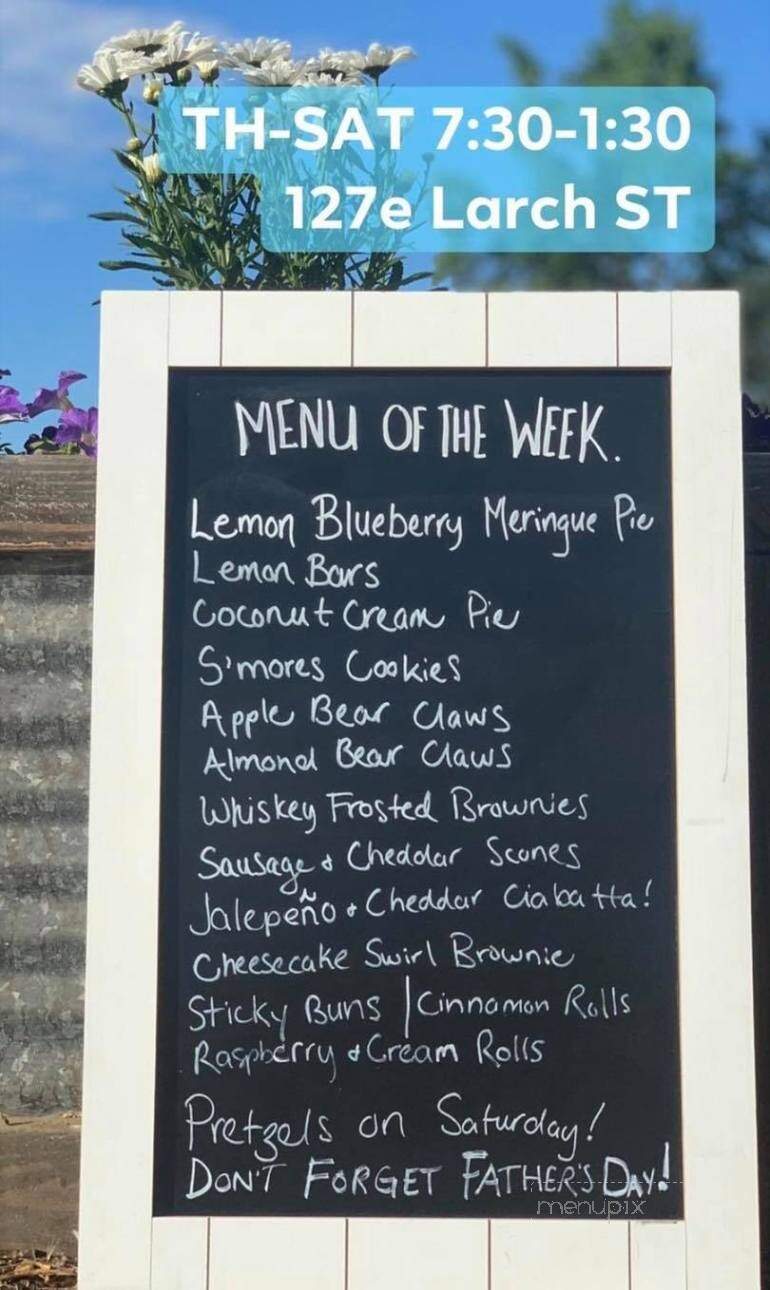 TH-SAT 7:30-1:30
127e Larch ST
MENU OF THE WEEK.
Lemon Blueberry Meringue Pie
Lemon Bars
Coconut Cream Pie
S'mores Cookies
Apple Bear Claws
Almond Bear Claws
Whiskey Frosted Brownies
Sausage & Cheddar Scones
Jalepeño & Cheddar Ciabatta!
Cheesecake Swirl Brownie
Sticky Buns | Cinnamon Rolls
Raspberry & Cream Rolls
Pretzels on Saturday!
DON'T FORGET FATHER'S DAY!
menupix